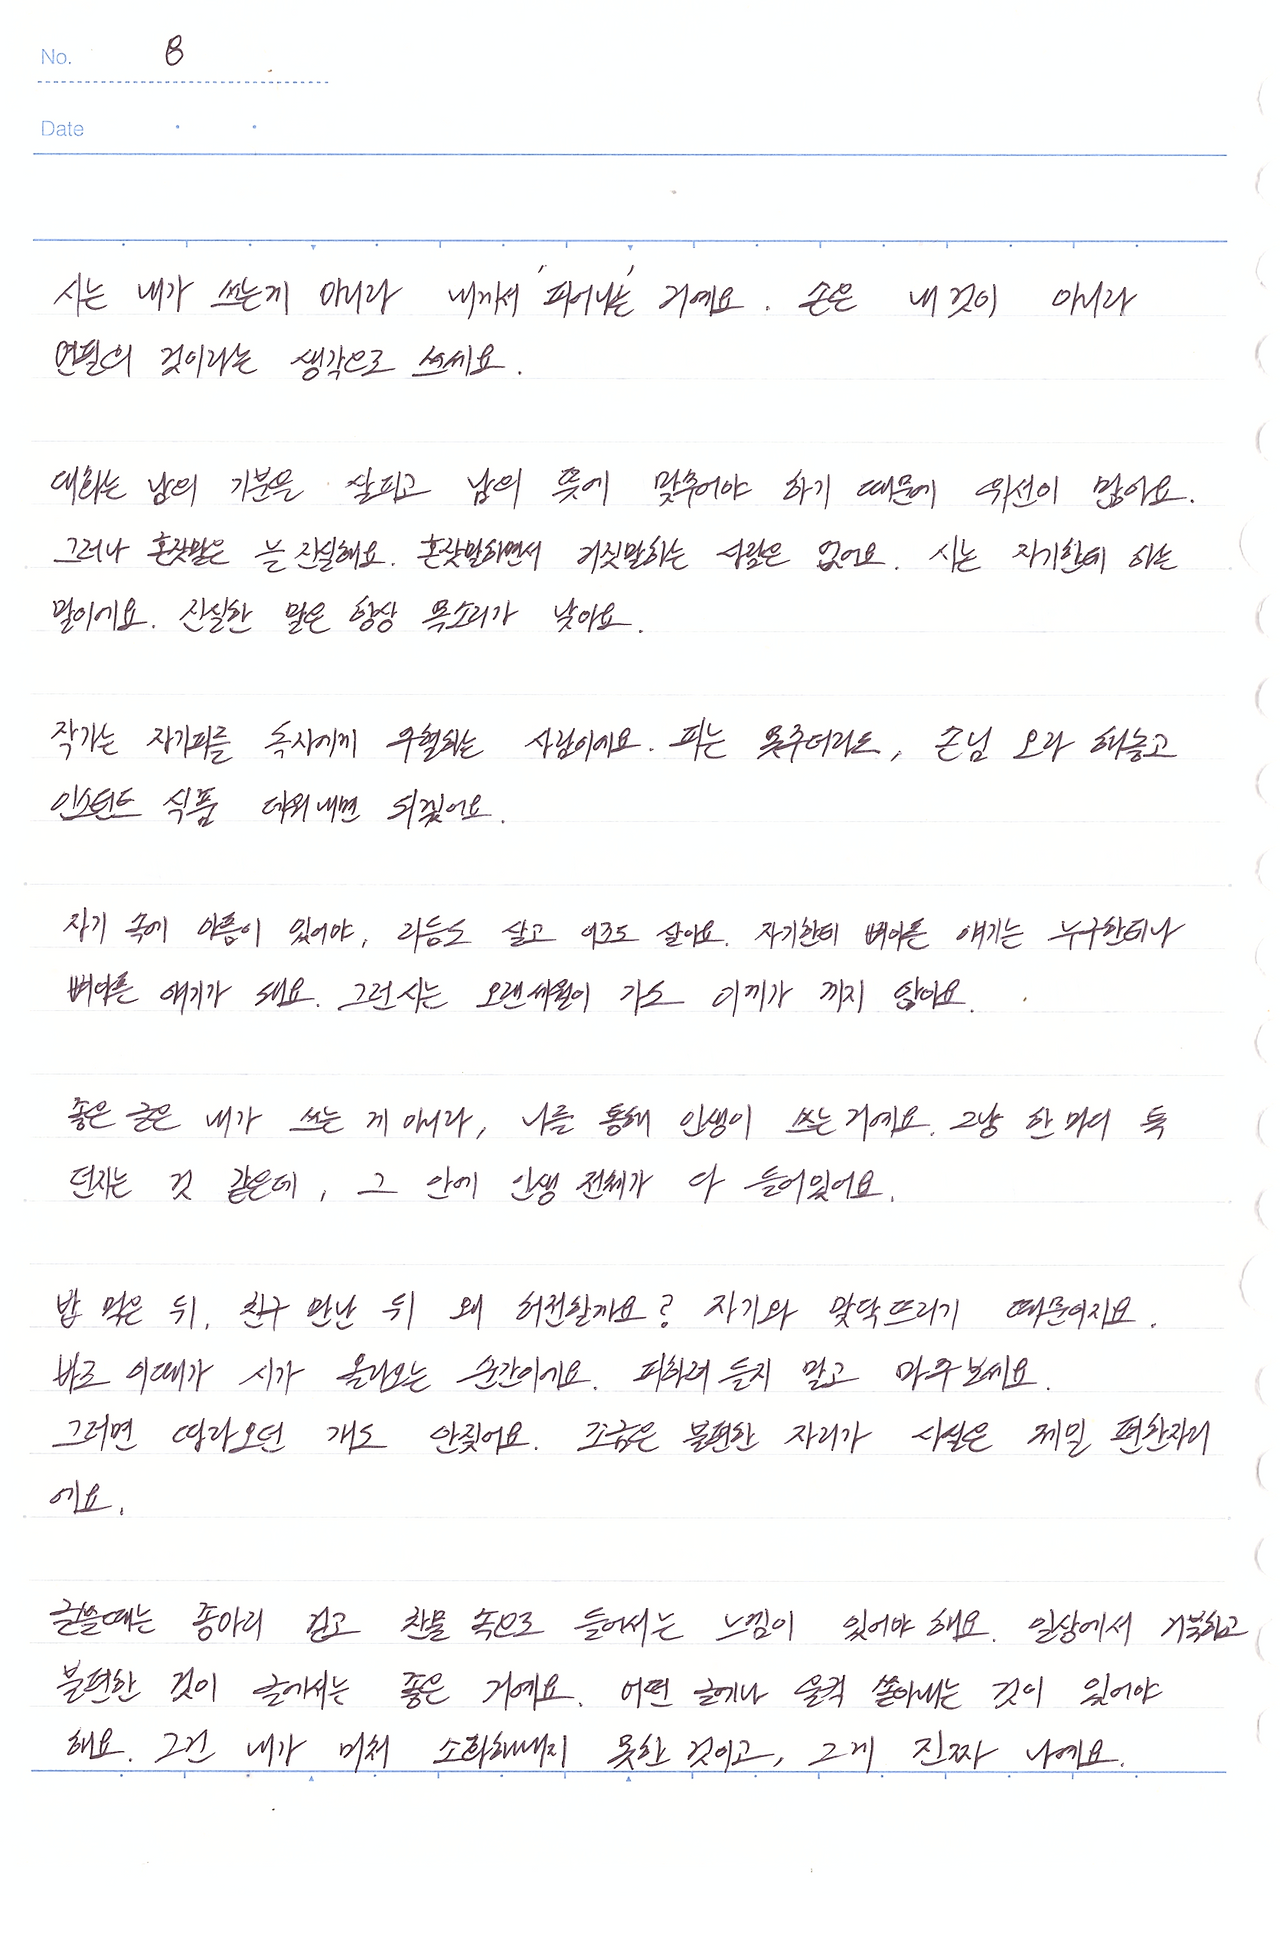 No. 8
Date
시는 내가 쓰는게 아니라 내게서 '피어나는' 거예요. 손은 내 것이 아니라
연필의 것이라는 생각으로 쓰세요.
대화는 남의 기분을 살피고 남의 뜻에 맞추어야 하기 때문에 위선이 많아요.
그러나 혼잣말은 늘 진실해요. 혼잣말하면서 거짓말하는 사람은 없어요. 시는 자기한테 하는
말이에요. 진실한 말은 항상 목소리가 낮아요.
작가는 자기피를 독자에게 수혈하는 사람이에요. 피는 못주더라도, 손님 오라 해놓고
인스턴트 식품 데워내면 되겠어요.
자기 속에 아픔이 있어야, 리듬도 살고 어조도 살아요. 자기한테 뼈아픈 얘기는 누구한테나
뼈아픈 얘기가 돼요. 그런시는 오랜세월이 가도 이끼가 끼지 않아요.
좋은 글은 내가 쓰는 게 아니라, 나를 통해 인생이 쓰는거예요. 그냥 한 마디 툭
던지는 것 같은데, 그 안에 인생 전체가 다 들어있어요.
밥 먹은 뒤, 친구 만난 뒤 왜 허전할까요? 자기와 맞닥뜨리기 때문이지요.
바로 이때가 시가 올라오는 순간이에요. 피하려 들지 말고 마주보세요.
그러면 따라오던 개도 안짖어요. 조금은 불편한 자리가 사실은 제일 편한자리
에요.
글쓸때는 종아리 걷고 찬물 속으로 들어서는 느낌이 있어야 해요. 일상에서 거북하고
불편한 것이 글에서는 좋은 거예요. 어떤 글에나 울컥 쏟아내는 것이 있어야
해요. 그건 내가 미처 소화해내지 못한 것이고, 그게 진짜 나예요.